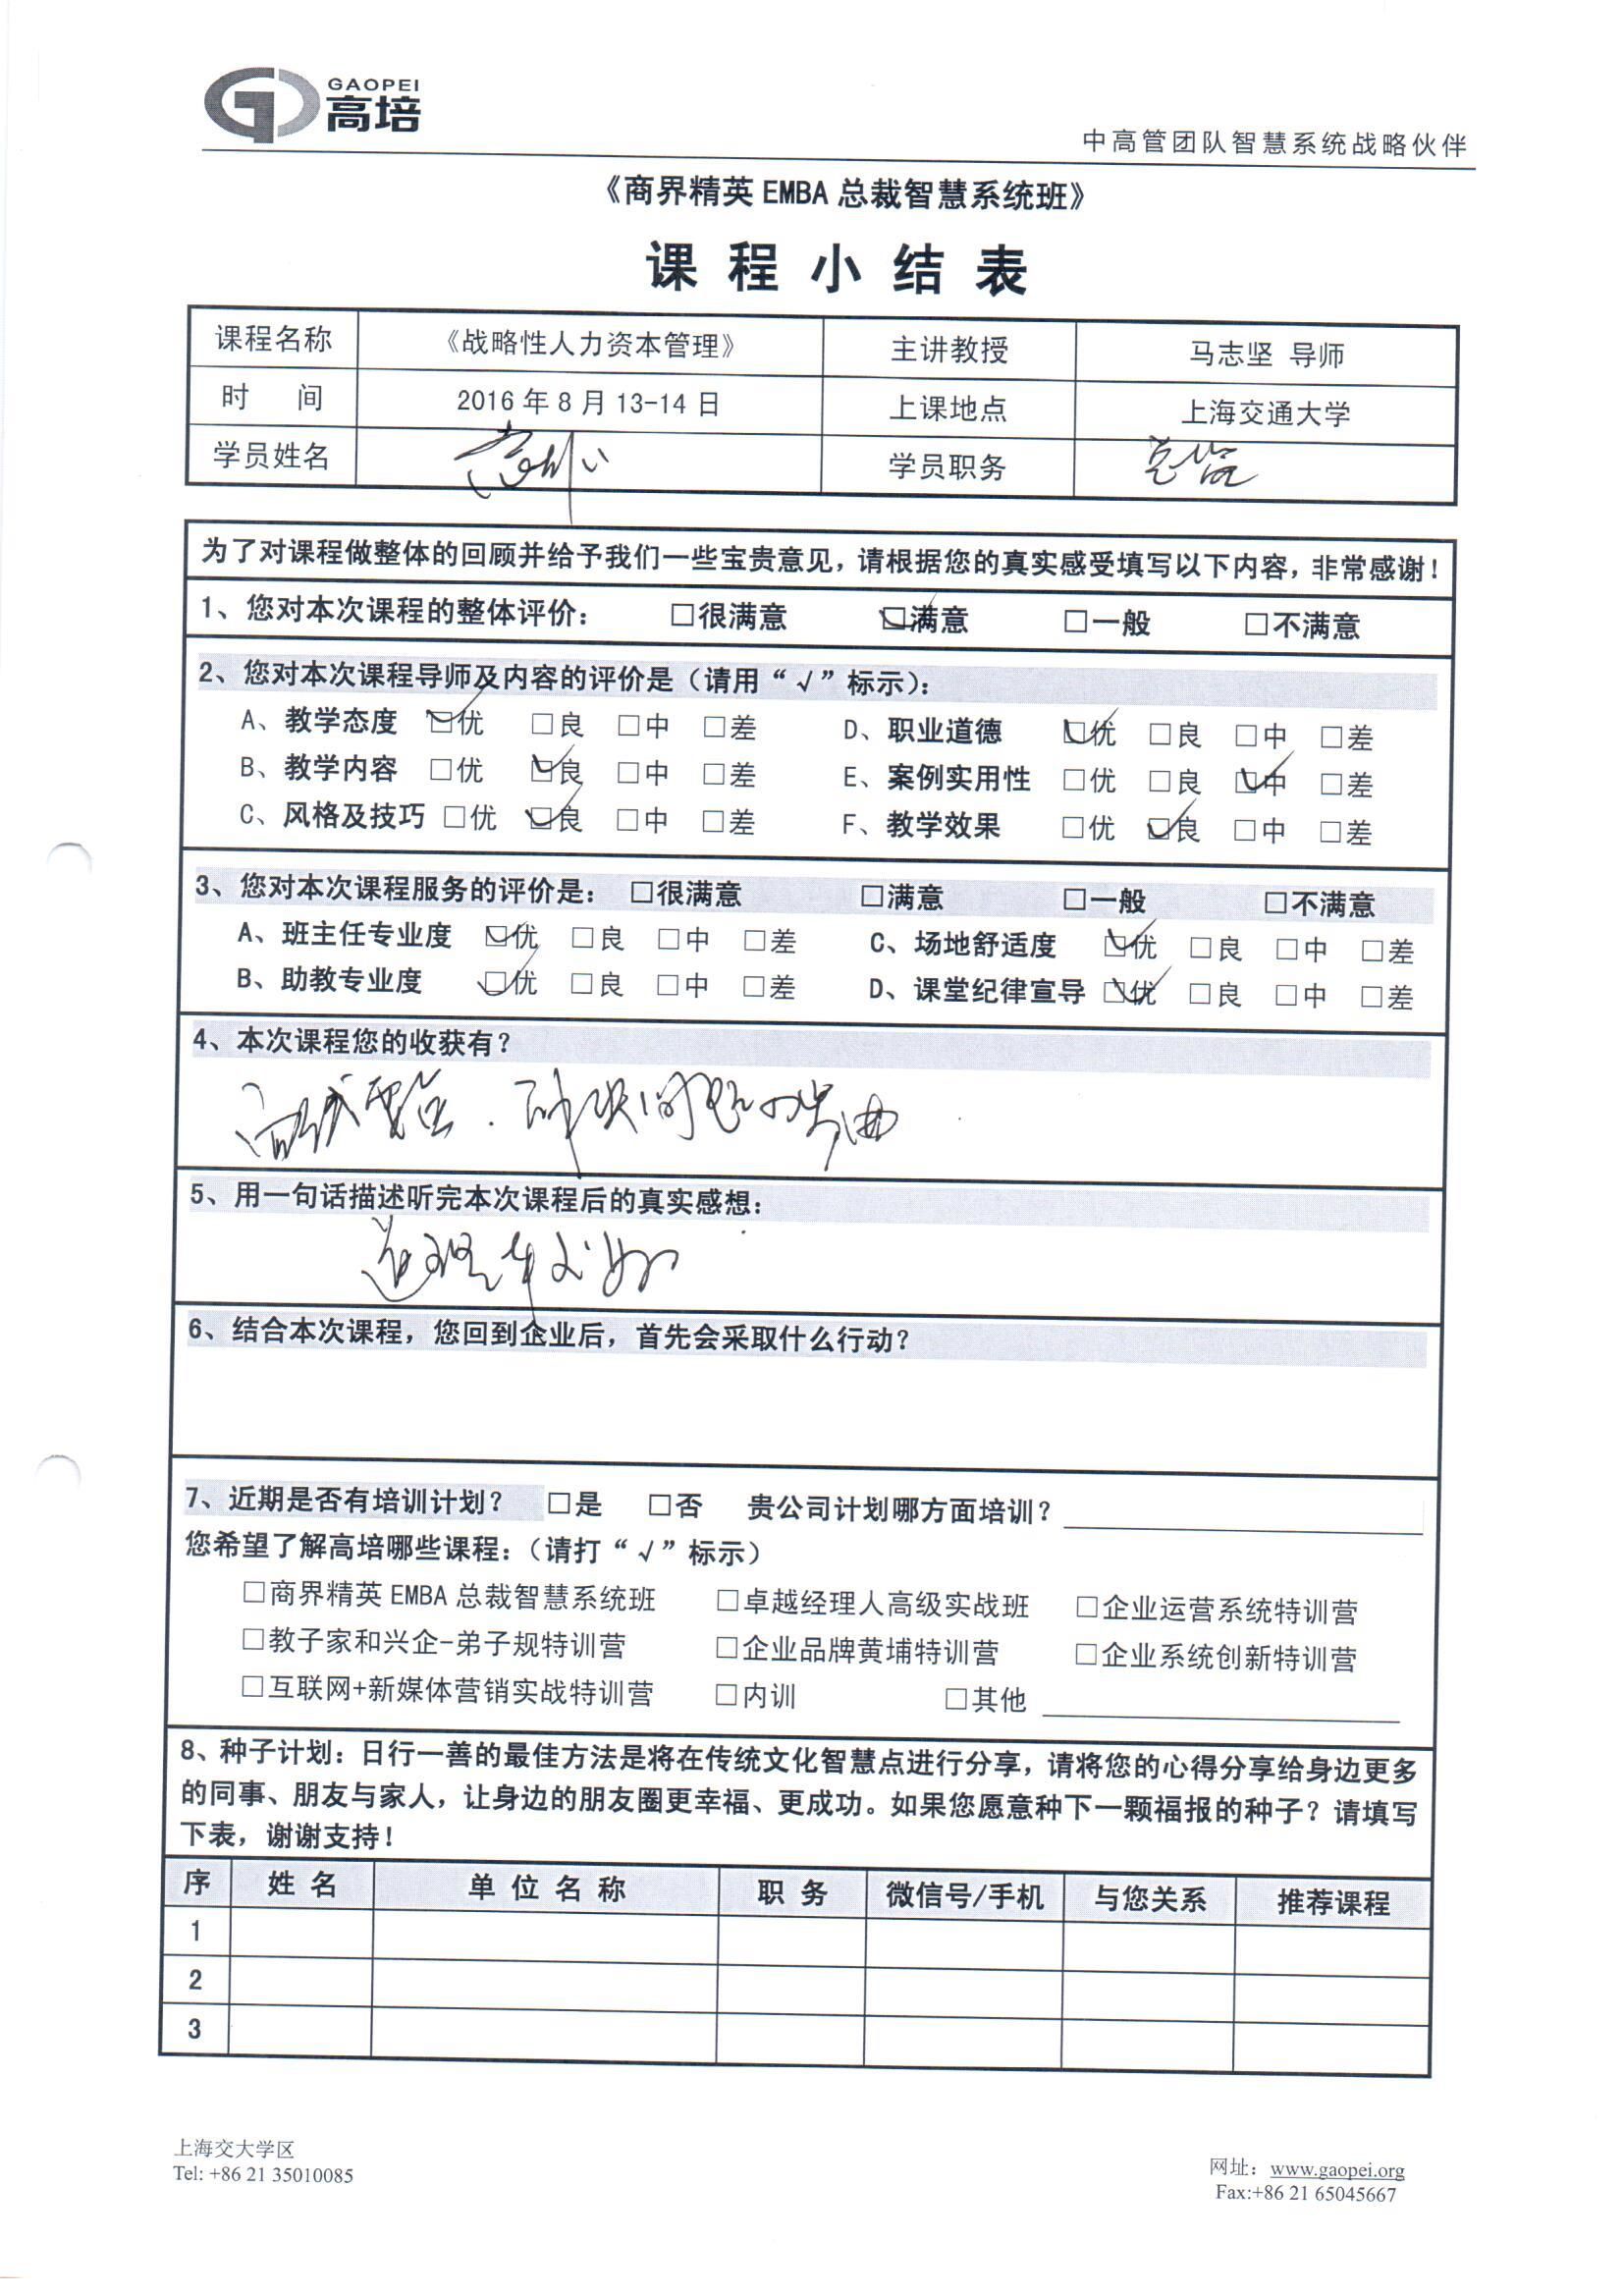 GAOPEI
高培
中高管团队智慧系统战略伙伴
《商界精英 EMBA 总裁智慧系统班》
课 程 小 结 表
课程名称 《战略性人力资本管理》 主讲教授 马志坚 导师
时 间 2016 年 8 月 13-14 日 上课地点 上海交通大学
学员姓名 学员职务 总监
为了对课程做整体的回顾并给予我们一些宝贵意见，请根据您的真实感受填写以下内容，非常感谢！
1、您对本次课程的整体评价： □很满意 ☑满意 □一般 □不满意
2、您对本次课程导师及内容的评价是（请用“√”标示）：
A、教学态度 ☑优 □良 □中 □差 D、职业道德 ☑优 □良 □中 □差
B、教学内容 □优 ☑良 □中 □差 E、案例实用性 □优 □良 ☑中 □差
C、风格及技巧 □优 ☑良 □中 □差 F、教学效果 □优 ☑良 □中 □差
3、您对本次课程服务的评价是： □很满意 □满意 □一般 □不满意
A、班主任专业度 ☑优 □良 □中 □差 C、场地舒适度 ☑优 □良 □中 □差
B、助教专业度 ☑优 □良 □中 □差 D、课堂纪律宣导 ☑优 □良 □中 □差
4、本次课程您的收获有？
5、用一句话描述听完本次课程后的真实感想：
6、结合本次课程，您回到企业后，首先会采取什么行动？
7、近期是否有培训计划？ □是 □否 贵公司计划哪方面培训？
您希望了解高培哪些课程：（请打“√”标示）
□商界精英 EMBA 总裁智慧系统班 □卓越经理人高级实战班 □企业运营系统特训营
□教子家和兴企-弟子规特训营 □企业品牌黄埔特训营 □企业系统创新特训营
□互联网+新媒体营销实战特训营 □内训 □其他
8、种子计划：日行一善的最佳方法是将在传统文化智慧点进行分享，请将您的心得分享给身边更多
的同事、朋友与家人，让身边的朋友圈更幸福、更成功。如果您愿意种下一颗福报的种子？请填写
下表，谢谢支持！
序 姓 名 单 位 名 称 职 务 微信号/手机 与您关系 推荐课程
1
2
3
上海交大学区
Tel: +86 21 35010085
网址：www.gaopei.org
Fax:+86 21 65045667